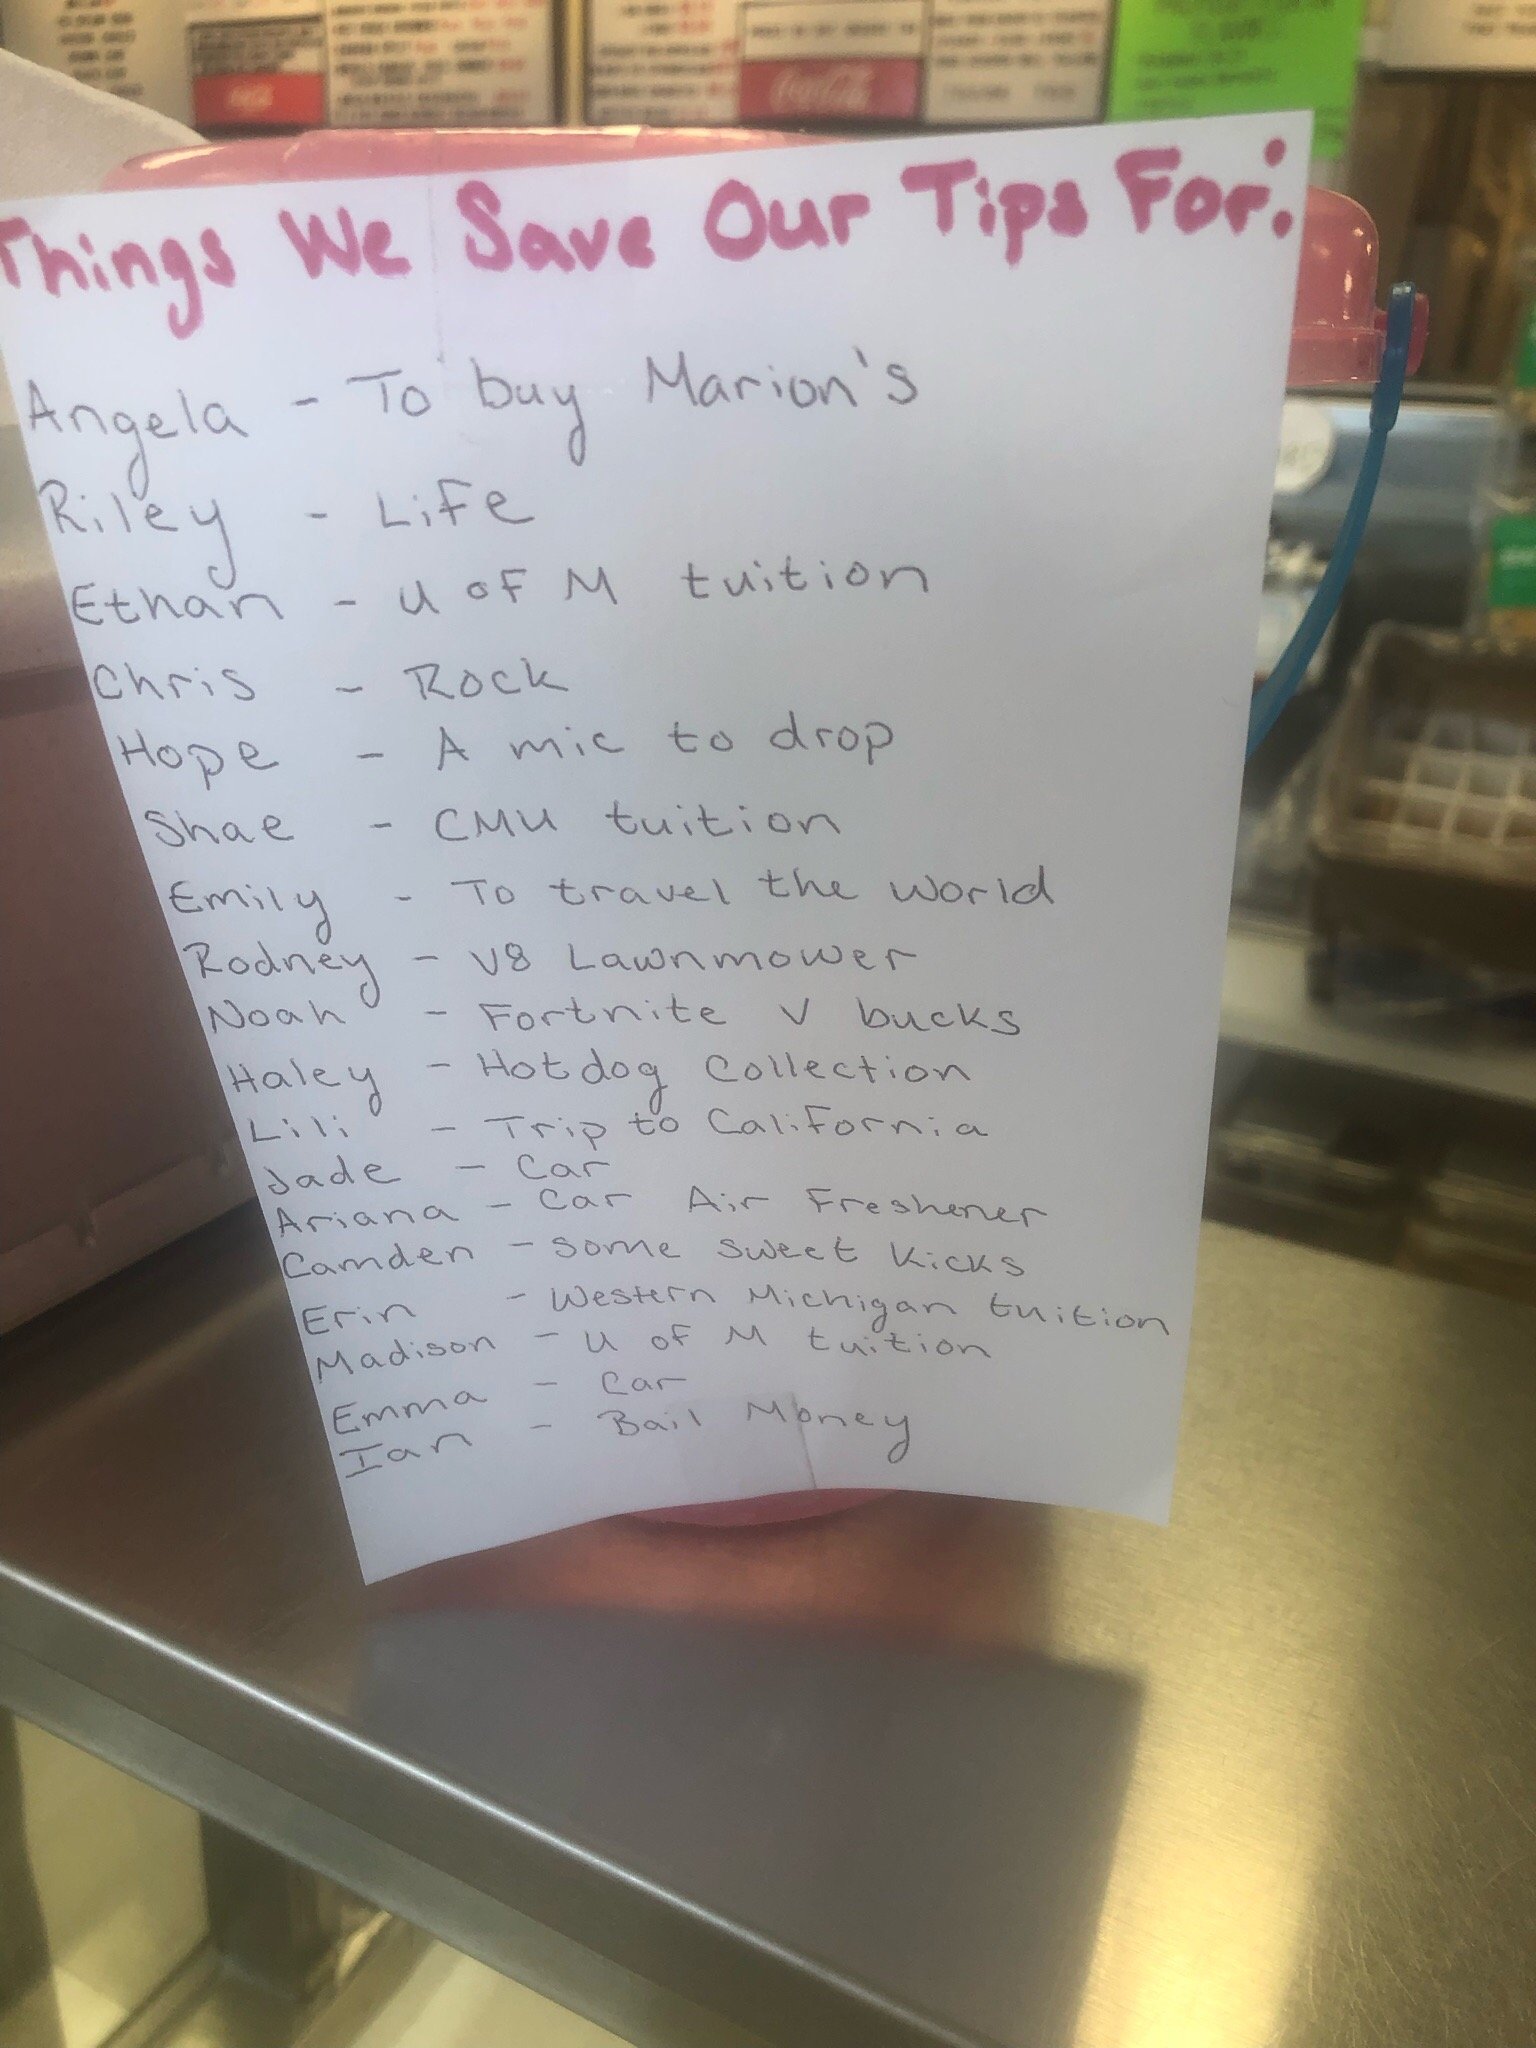 Things We Save Our Tips For:
Angela - To buy Marion's
Riley - Life
Ethan - U of M tuition
Chris - Rock
Hope - A mic to drop
Shae - CMU tuition
Emily - To travel the world
Rodney - V8 Lawnmower
Noah - Fortnite V bucks
Haley - Hotdog Collection
Lili - Trip to California
Jade - Car
Ariana - Car Air Freshener
Camden - some sweet kicks
Erin - Western Michigan tuition
Madison - U of M tuition
Emma - Car
Ian - Bail Money
Coca-Cola